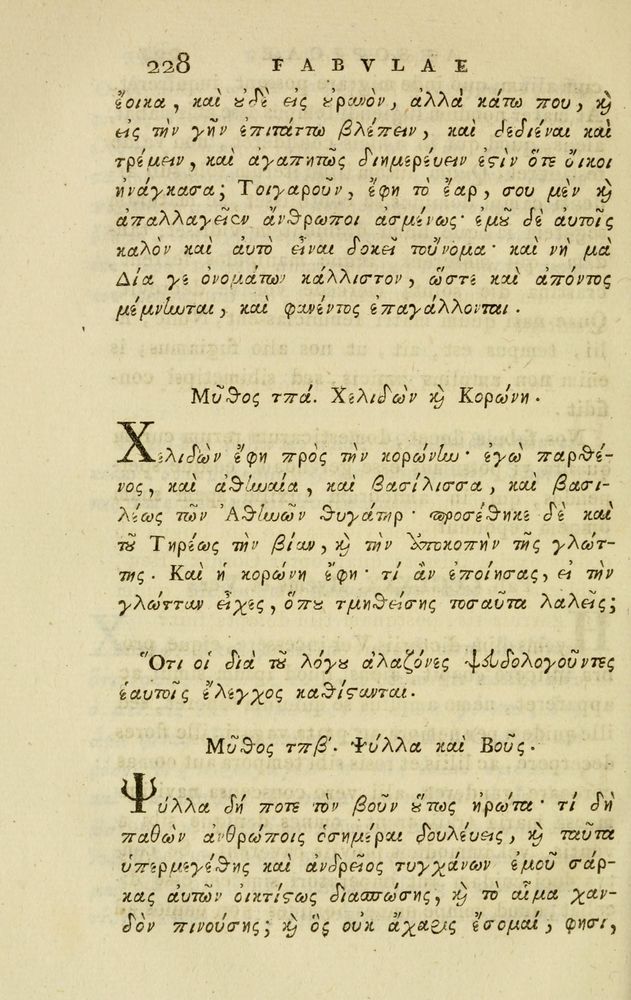 228 FABVLAE
ἔοικα, καὶ ȣ̓δὲ εἰς ȣ̓ρανὸν, ἀλλὰ κάτω που, ϗ
εἰς τὴν γῆν ἐπιτάττω βλέπειν, καὶ δεδιέναι καὶ
τρέμειν, καὶ ἀγαπητῶς διημερεύειν ἐϛὶν ὅτε οἴκοι
ἠνάγκασα; Τοιγαροῦν, ἔφη τὸ ἔαρ, σου μὲν ϗ
ἀπαλλαγεῖεν ἄνθρωποι ἀσμένως· ἐμȣ͂ δὲ αὐτοῖς
καλὸν καὶ αὐτὸ εἶναι δοκεῖ τοὔνομα· καὶ νὴ μὰ
Δία γε ὀνομάτων κάλλιστον, ὥστε καὶ ἀπόντος
μέμνηνται, καὶ φανέντος ἐπαγάλλονται.
Μῦθος τπά. Χελιδὼν ϗ Κορώνη.
Χελιδὼν ἔφη πρὸς τὴν κορώνην· ἐγὼ παρθέ-
νος, καὶ ἀθηναία, καὶ βασίλισσα, καὶ βασι-
λέως τῶν Ἀθηνῶν θυγάτηρ· προσέθηκε δὲ καὶ
τȣ͂ Τηρέως τὴν βίαν, ϗ τὴν ὑποκοπὴν τῆς γλώτ-
της. Καὶ ἡ κορώνη ἔφη· τί ἂν ἐποίησας, εἰ τὴν
γλώτταν εἶχες, ὅπȣ τμηθείσης τοσαῦτα λαλεῖς;
Ὅτι οἱ διὰ τȣ͂ λόγȣ ἀλαζόνες ψευδολογοῦντες
ἑαυτοῖς ἔλεγχος καθίϛανται.
Μῦθος τπβ΄. Ψύλλα καὶ Βοῦς.
Ψύλλα δή ποτε τὸν βοῦν ȣ̔́τως ἠρώτα· τί δὴ
παθὼν ἀνθρώποις ὁσημέραι δουλεύεις, ϗ ταῦτα
ὑπερμεγέθης καὶ ἀνδρεῖος τυγχάνων ἐμοῦ σάρ-
κας αὐτῶν οἰκτίϛως διασπώσης, ϗ τὸ αἷμα χαν-
δὸν πινούσης; ϗ ὃς οὐκ ἄχαρις ἔσομαί, φησι,